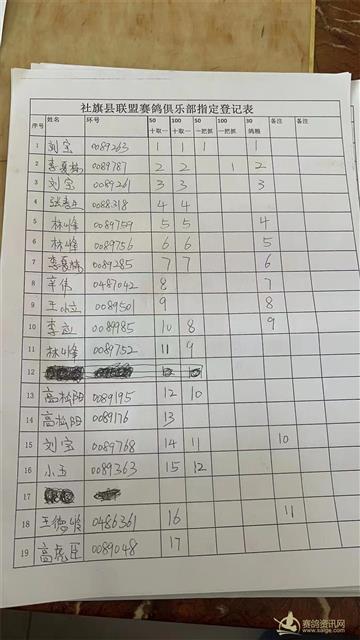 社旗县联盟赛鸽俱乐部指定登记表
序号 姓名 环号 50十取一 100十取一 50一把抓 100一把抓 30鸽粮 备注 备注
1 刘宝 0089263 1 1 1 1
2 李夏楠 0089787 2 2 1 2
3 刘宝 0089261 3 3 3
4 0088318 4 4
5 林峰 0089759 5 5 4
6 林峰 0089756 6 6 5
7 李夏楠 0089285 7 7 6
8 辛伟 0487042 8 7
9 王小立 0089501 9 8
10 李应 0089985 10 8 9
11 林峰 0089752 11 9
12
13 高松阳 0089195 12 10
14 高松阳 0089176 13
15 刘宝 0089768 14 11 10
16 小玉 0089363 15 12
17
18 王德顺 0486361 16 11
19 高虎臣 0089048 17
赛鸽资讯网
www.saige.com